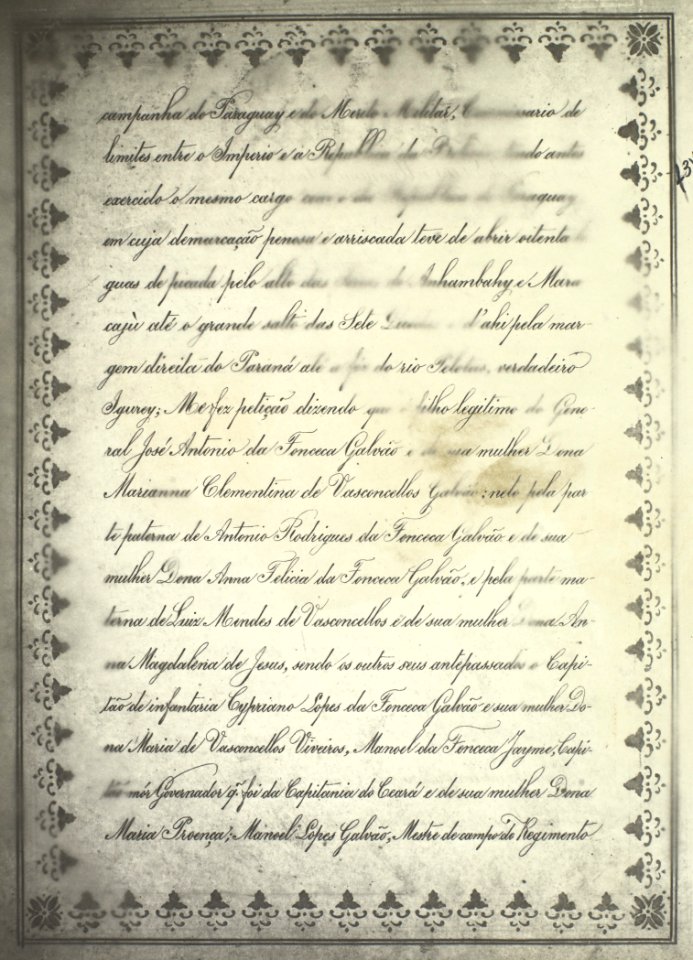 campanha do Paraguay e do Merito Militar, Commissario de
limites entre o Imperio e a Republica da antes
exercido o mesmo cargo com o da Republica do Paraguay
em cuja demarcação penosa e arriscada teve de abrir oitenta le
guas de picada pelo alto das de Anhambahy e Mara
cajù até o grande salto das Sete e d'ahi pela mar-
gem direita do Paraná até a foz do rio verdadeiro
Igurey; Me fez petição dizendo que é filho legitimo do Gene-
ral José Antonio da Fonceca Galvão e de sua mulher Dona
Marianna Clementina de Vasconcellos Galvão: neto pela par
te paterna de Antonio Rodrigues da Fonceca Galvão e de sua
mulher Dona Anna Felicia da Fonceca Galvão, e pela parte ma-
terna de Luiz Mendes de Vasconcellos e de sua mulher Dona An-
na Magdalena de Jesus, sendo os outros seus antepassados o Capi-
tão de infantaria Cypriano Lopes da Fonceca Galvão e sua mulher Do-
na Maria de Vasconcellos Viveiros, Manoel da Fonceca Jayme, Capi-
tão mór Governador q. foi da Capitania do Ceará e de sua mulher Dona
Maria Proença; Manoel Lopes Galvão, Mestre de campo do Regimento